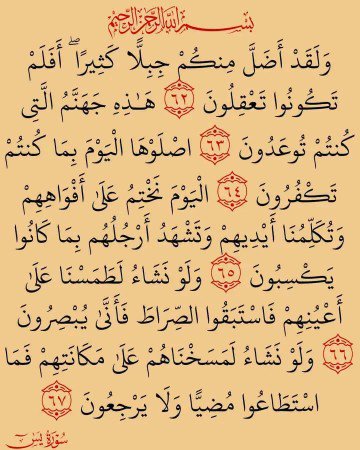 بِسْمِ اللَّهِ الرَّحْمَنِ الرَّحِيمِ
وَلَقَدْ أَضَلَّ مِنكُمْ جِبِلًّا كَثِيرًا ۖ أَفَلَمْ
تَكُونُوا تَعْقِلُونَ ٦٢ هَٰذِهِ جَهَنَّمُ الَّتِي
كُنتُمْ تُوعَدُونَ ٦٣ اصْلَوْهَا الْيَوْمَ بِمَا كُنتُمْ
تَكْفُرُونَ ٦٤ الْيَوْمَ نَخْتِمُ عَلَىٰ أَفْوَاهِهِمْ
وَتُكَلِّمُنَا أَيْدِيهِمْ وَتَشْهَدُ أَرْجُلُهُم بِمَا كَانُوا
يَكْسِبُونَ ٦٥ وَلَوْ نَشَاءُ لَطَمَسْنَا عَلَىٰ
أَعْيُنِهِمْ فَاسْتَبَقُوا الصِّرَاطَ فَأَنَّىٰ يُبْصِرُونَ
٦٦ وَلَوْ نَشَاءُ لَمَسَخْنَاهُمْ عَلَىٰ مَكَانَتِهِمْ فَمَا
اسْتَطَاعُوا مُضِيًّا وَلَا يَرْجِعُونَ ٦٧
سُورَةُ يس